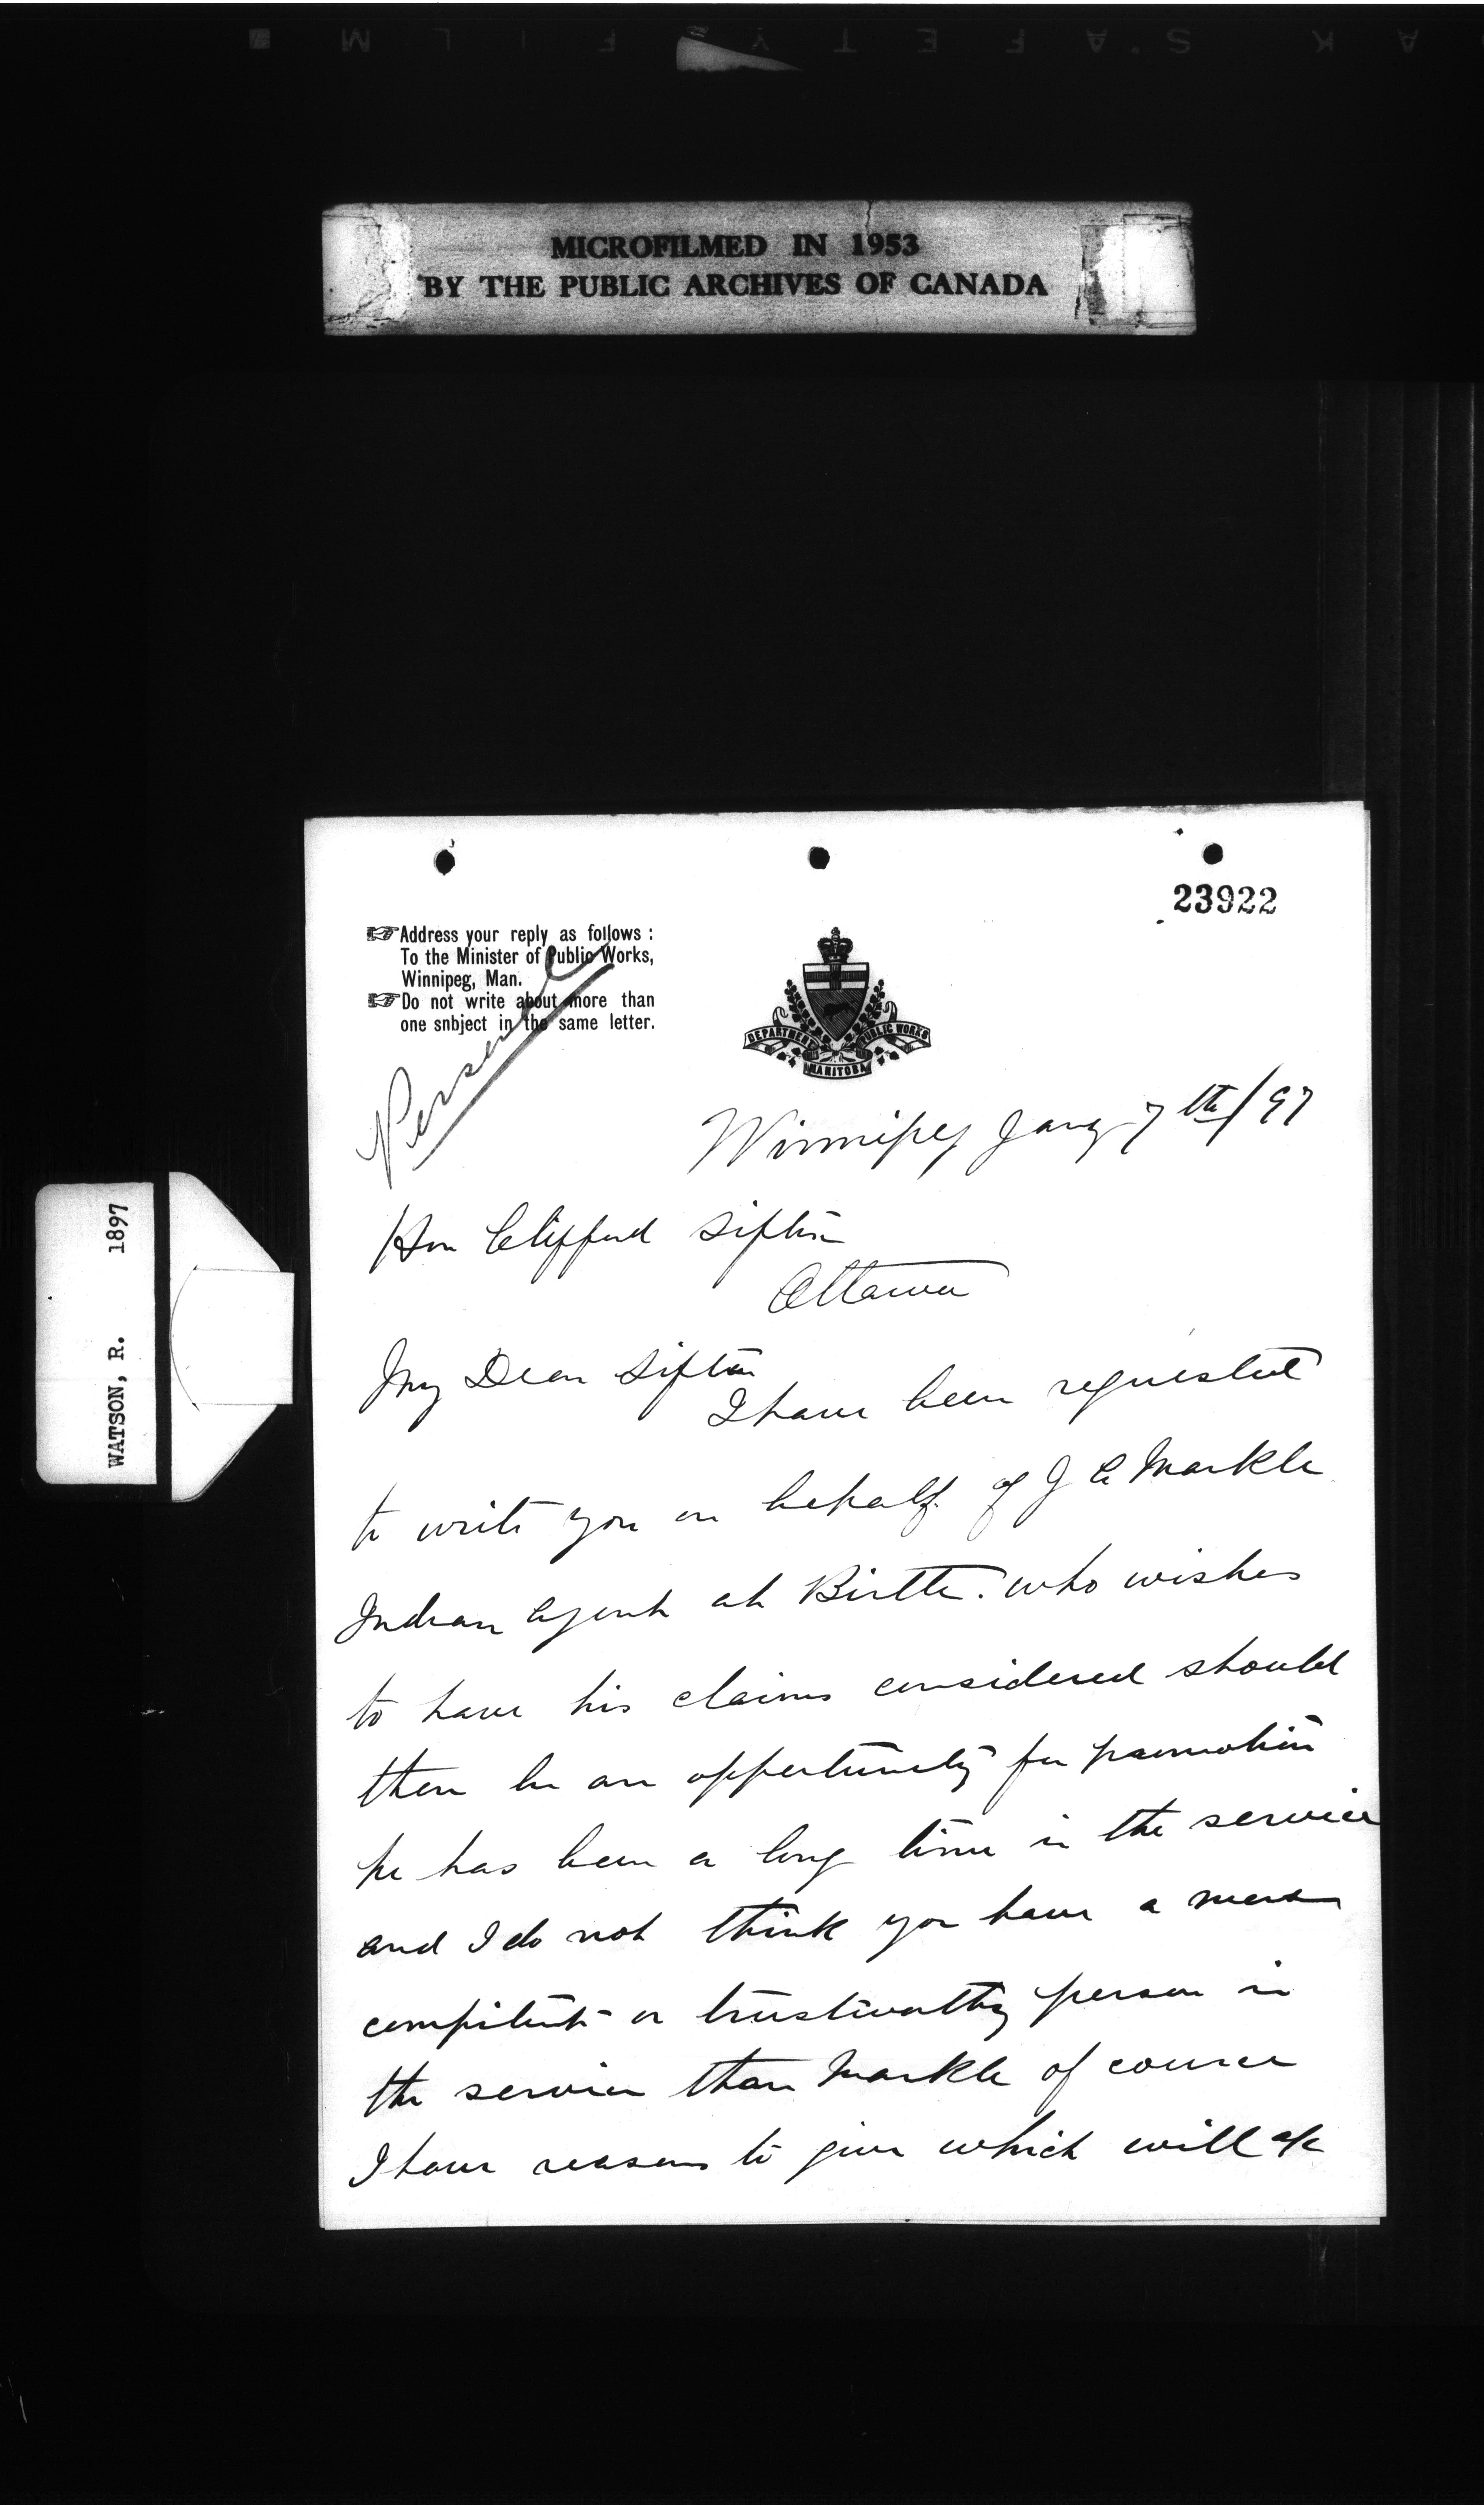 SAFETY FILM
MICROFILMED IN 1953
BY THE PUBLIC ARCHIVES OF CANADA
WATSON, R. 1897
23922
☞ Address your reply as follows :
To the Minister of Public Works,
Winnipeg, Man.
☞ Do not write about more than
one snbject in the same letter.
Personal
DEPARTMENT PUBLIC WORKS
MANITOBA
Winnipeg Jany 7th/97
Hon Clifford Sifton
Ottawa
My Dear Sifton
I have been requested
to write you on behalf of J A Markle
Indian Agent at Birtle. who wishes
to have his claims considered should
there be an opportunity for promotion
he has been a long time in the service
and I do not think you have a more
competent or trustworthy person in
the service than Markle of course
I have reasons to give which will